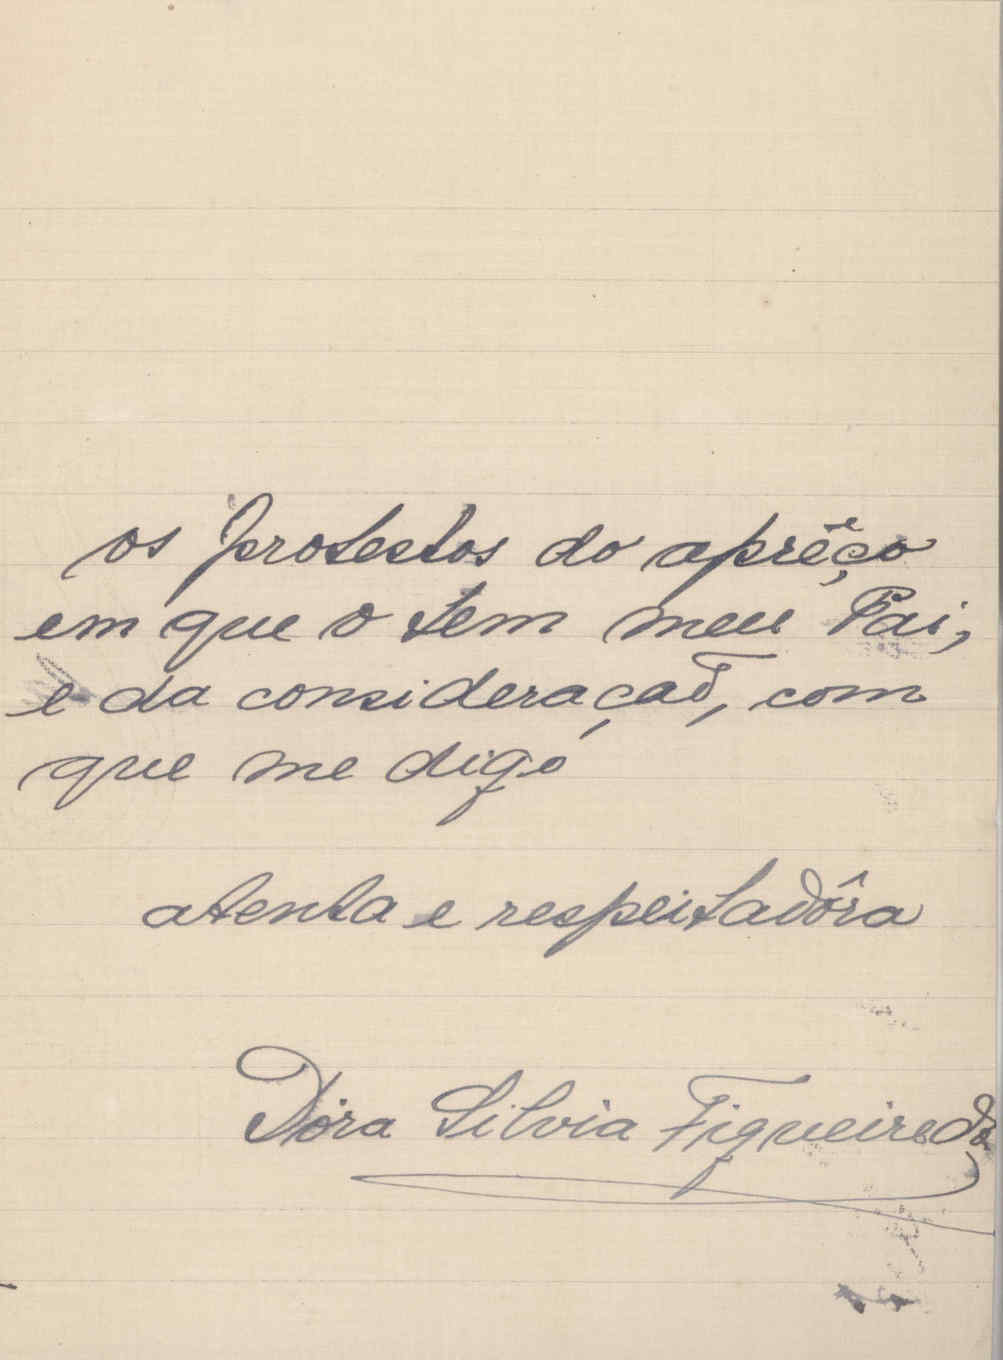 os protestos do aprêço
em que o tem meu Pai,
e da consideração, com
que me digo
atenta e respeitadôra
Dóra Silvia Figueiredo